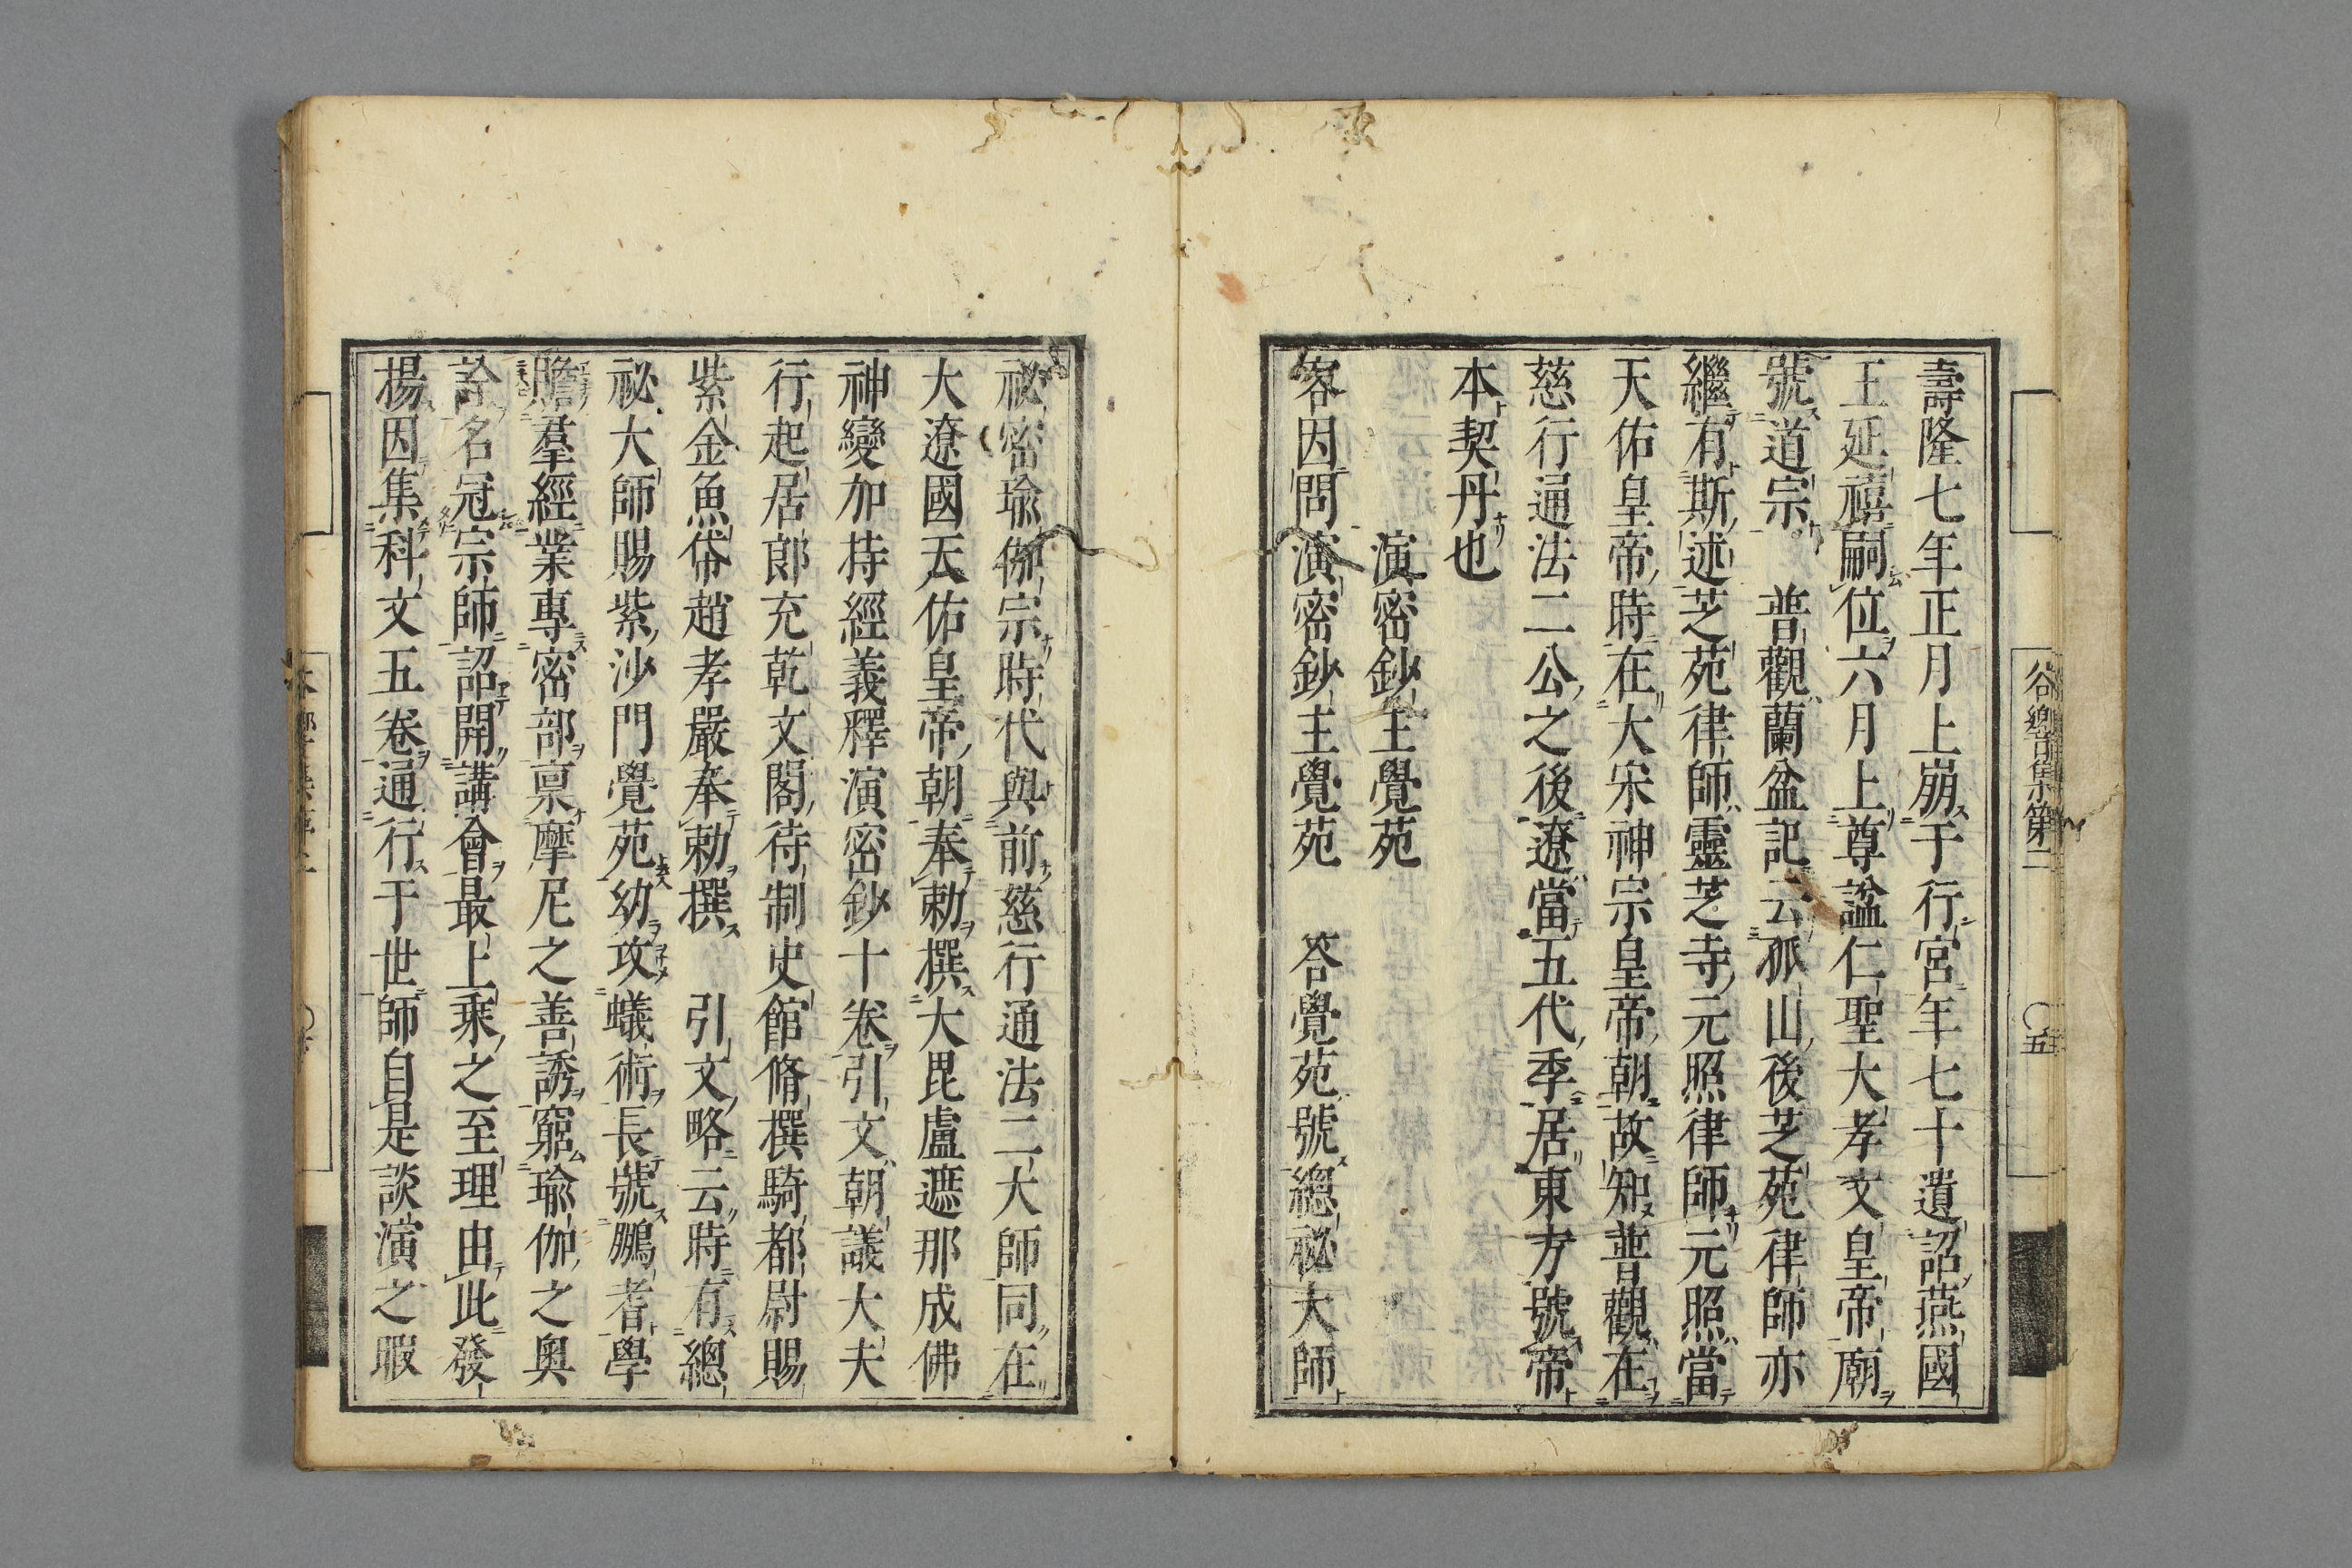 壽隆七年正月上崩于行宮年七十遺詔燕國
王延禧嗣位六月上尊諡仁聖大孝文皇帝廟
號道宗　普觀蘭盆記云孤山後芝苑律師亦
繼有斯述芝苑律師靈芝寺元照律師元照當
天佑皇帝時在大宋神宗皇帝朝故知普觀在
慈行通法二公之後遼當五代季居東方號帝
本契丹也
演密鈔主覺苑
客因問演密鈔主覺苑　答覺苑號總祕大師
谷響集第二
〇五
祕密瑜伽宗時代與前慈行通法二大師同在
大遼國天佑皇帝朝奉勅撰大毘盧遮那成佛
神變加持經義釋演密鈔十卷引文朝議大夫
行起居郎充乾文閣待制史館脩撰騎都尉賜
紫金魚帒趙孝嚴奉勅撰　引文略云時有總
祕大師賜紫沙門覺苑幼攻蟻術長號鵬耆學
贍羣經業專密部禀摩尼之善誘窮瑜伽之奧
詮名冠宗師詔開講會最上乘之至理由此發
揚因集科文五卷通行于世師自是談演之暇